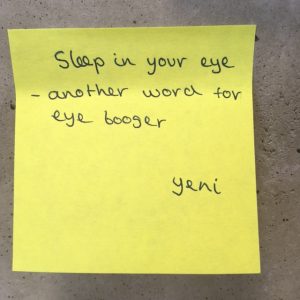 Sleep in your eye
- another word for
eye booger
yeni